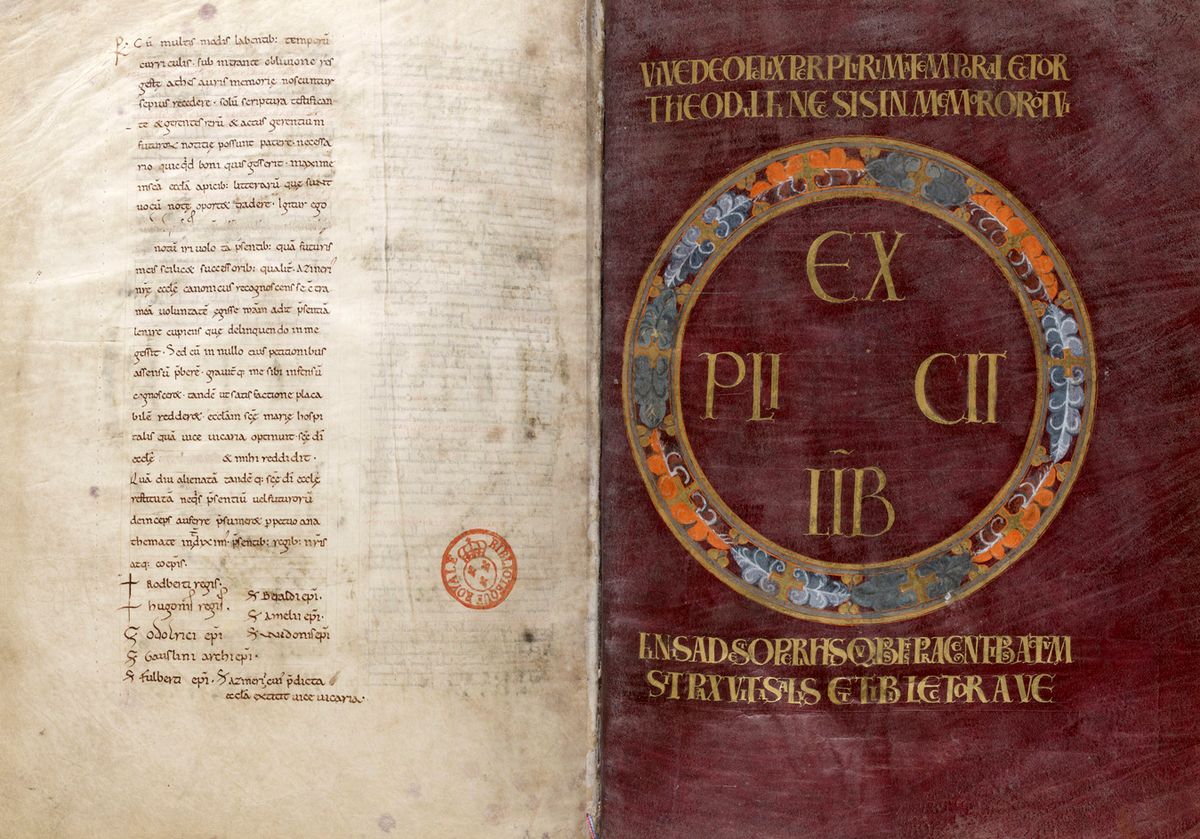 Cū multis modis labentib: temporū
curriculis · sub intrante oblivione res
gestę ab hęs auris memorie noscuntur
sepius recedere · solū scriptura testifican
te & gerentes rerū & actus gerentiū in
futurorū notitię possunt patere · necessa
rio quicqd boni quis gesserit · maxime
in scā ecclā apicib: litterarū quę sunt
vocū notę oport& tradere · Igitur ego
notū iri volo tā p̄sentib: quā futuris
meis scilic& successorib: qualit̄ · Azineri
n̄rę ecclę canonicus recognoscens se c̄tra
meā voluntatē egisse meām adit p̄sentiā
lenire cupiens quę delinquendo in me
gessit · Sed cū in nullo eius petitionibus
assensū p̄berē · gravit̄q me sibi infensū
cognoscer& · tandē ut satisfactione placa
bilē redder& ecclam scę marię hospi
talis quā vice vicaria optinuit scę dī
ecclę & mihi reddidit ·
Quā diu alienatā tandē q: scę dī ecclę
restitutā neq̄s p̄sentiū vel futurorū
deinceps auferre p̄sumer& ppetuo ana
themate indixim · p̄sentib: regib: n̄ris
atq: coepis ·
Rodberti regis ·
Hugonis regis ·
S Odolrici epi
S Gauslini archiepi ·
S Fulberti epi ·
S Beraldi epi ·
S Amelii epi ·
S Widonis epi
S Azinerii cui p̄dicta
ecclā extitit vice vicaria ·
BIBLIOTHEQUE ROYALE
347
VIVE DEO FELIX PER PLURIMA TEMPORA LECTOR
THEODULFI NEC SIS INMEMOR ORO TUI
EX
PLI CIT
LIB
FINIS ADEST OPERI HIS QUIBUS EST PERAGENTIBUS ACTUM
SIT PAX VITA SALUS ET TIBI LECTOR AVE